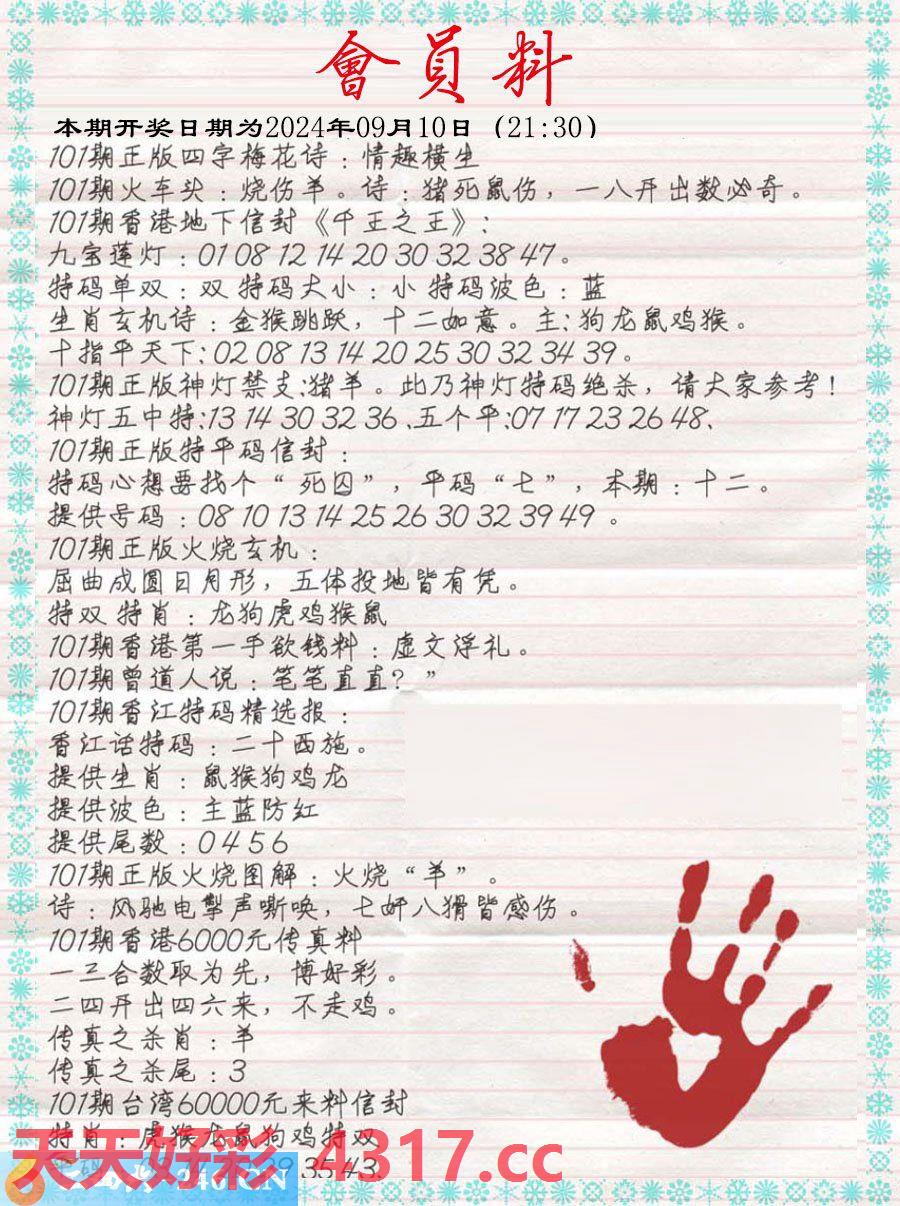 會員料
本期开奖日期为2024年09月10日（21:30）
101期正版四字梅花诗：情趣横生
101期火车头：烧伤羊。诗：猪死鼠伤，一八开出数必奇。
101期香港地下信封《千王之王》：
九宝莲灯：01 08 12 14 20 30 32 38 47。
特码单双：双 特码大小：小 特码波色：蓝
生肖玄机诗：金猴跳跃，十二如意。主：狗龙鼠鸡猴。
十指平天下：02 08 13 14 20 25 30 32 34 39。
101期正版神灯禁支:猪羊。此乃神灯特码绝杀，请大家参考！
神灯五中特:13 14 30 32 36 、五个平:07 17 23 26 48、
101期正版特平码信封：
特码心想要找个“死囚”，平码“七”，本期：十二。
提供号码：08 10 13 14 25 26 30 32 39 49 。
101期正版火烧玄机：
屈曲成圆日月形，五体投地皆有凭。
特双 特肖：龙狗虎鸡猴鼠
101期香港第一手欲钱料：虚文浮礼。
101期曾道人说：笔笔直直？”
101期香江特码精选报：
香江话特码：二十西施。
提供生肖：鼠猴狗鸡龙
提供波色：主蓝防红
提供尾数：0 4 5 6
101期正版火烧图解：火烧“羊”。
诗：风驰电掣声嘶唤，七奸八猾皆感伤。
101期香港6000元传真料
一三合数取为先，博好彩。
二四开出四六来，不走鸡。
传真之杀肖：羊
传真之杀尾：3
101期台湾60000元来料信封
特肖：虎猴龙鼠狗鸡特双
35 43
天天好彩 4317.cc